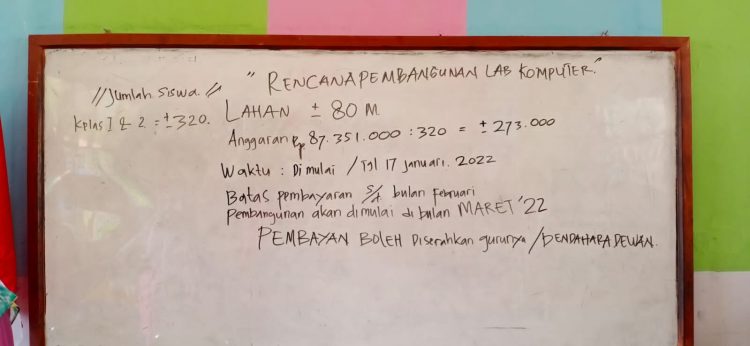 " RENCANA PEMBANGUNAN LAB KOMPUTER."
// Jumlah Siswa. //
Kelas I & 2. = ± 320.
LAHAN ± 80 M.
Anggaran Rp 87.351.000 : 320 = ± 273.000
Waktu : Di mulai / Tgl 17 januari. 2022
Batas pembayaran S/d bulan Februari
Pembangunan akan dimulai di bulan MARET '22
PEMBAYAN BOLEH Diserahkan gurunya / BENDAHARA DEWAN.